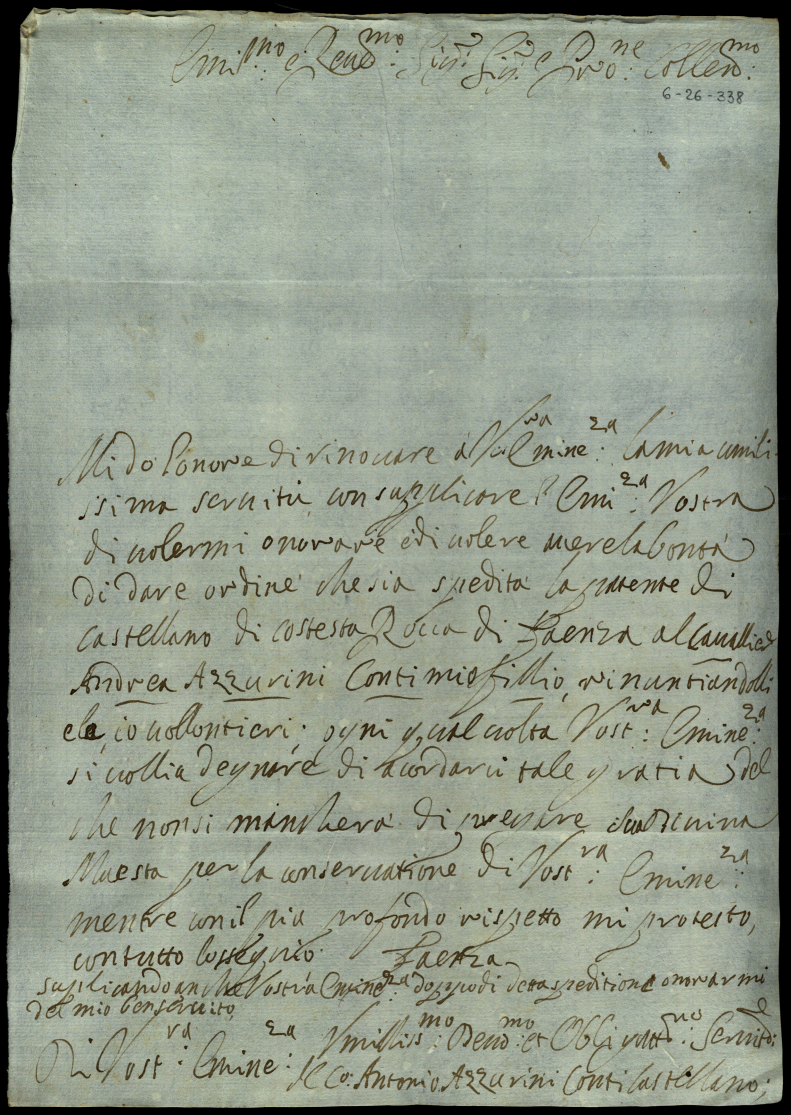 Emi.mo e Reud.mo Sig.r Sig.r e Pro.ne Collen.mo:
6-26-338
Mi do l'onore di rinouare à Vra Emine.za la mia umili-
ssima seruitù, con suplicare l'Emi.za Vostra
di uolermi onorare e di uolere auere la bontà
di dare ordine che sia spedita la patente di
Castellano di costesta Rocca di Faenza al Cauallier
Andrea Azzurini Conti mio fillio, rinuntiandolli
ela io uollontieri; ogni qual uolta Vost.ra Emine.za
si uollia degnare di acordarci tale gratia del
che non si mancherà di pregare sua Diuina
Maestà per la conseruatione di Vost.ra Emine.za
mentre con il più profondo rispetto mi protesto,
con tutto l'ossequio. Faenza
suplicando anche Vostra Emine.za doppo di detta speditione onorarmi
del mio benseruito,
Di Vost.ra Emine.za Vmilliss.mo Deuo.mo et Obligatt.mo Seruito.e
Il Co: Antonio Azzurini Conti Castellano;